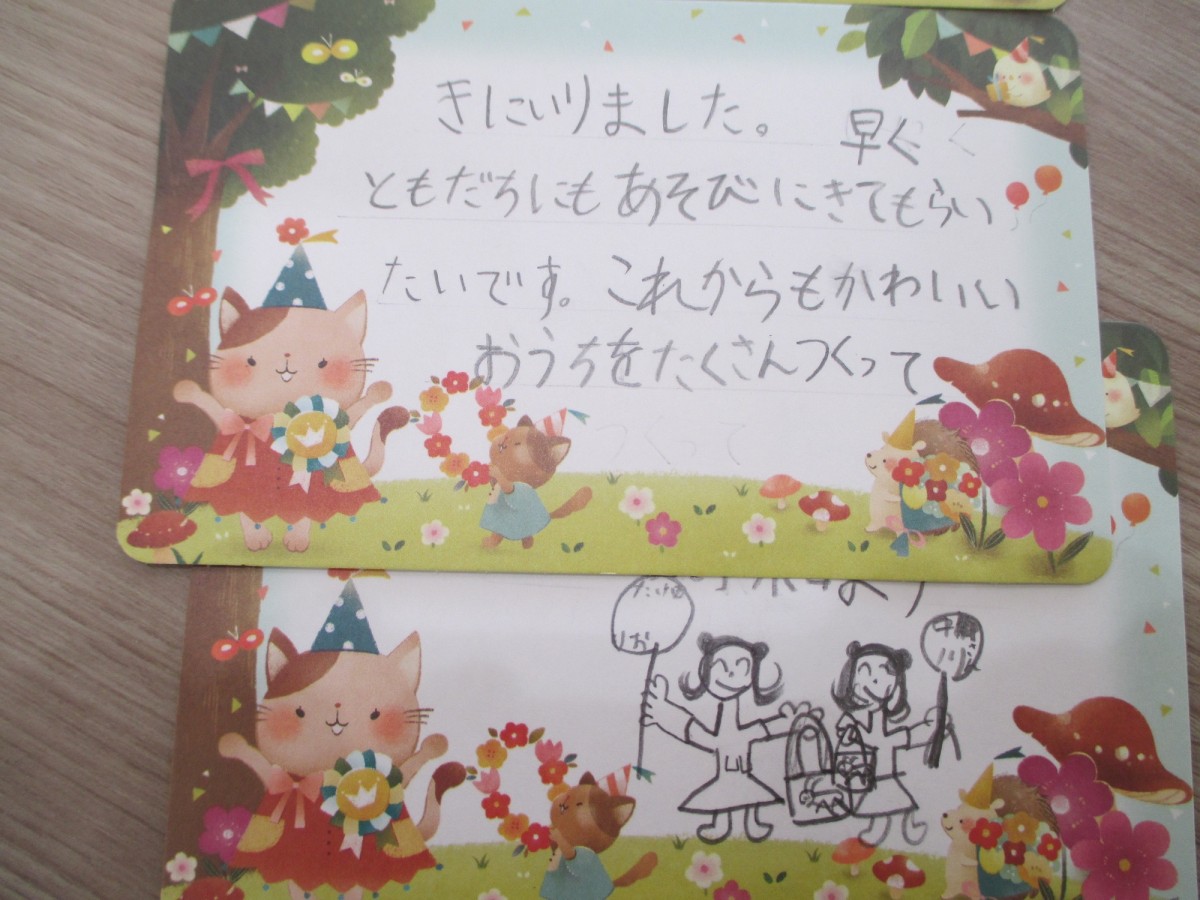 きにいりました。
早く
ともだちにもあそびにきてもらい
たいです。これからもかわいい
おうちをたくさんつくって
つくって
より
りお